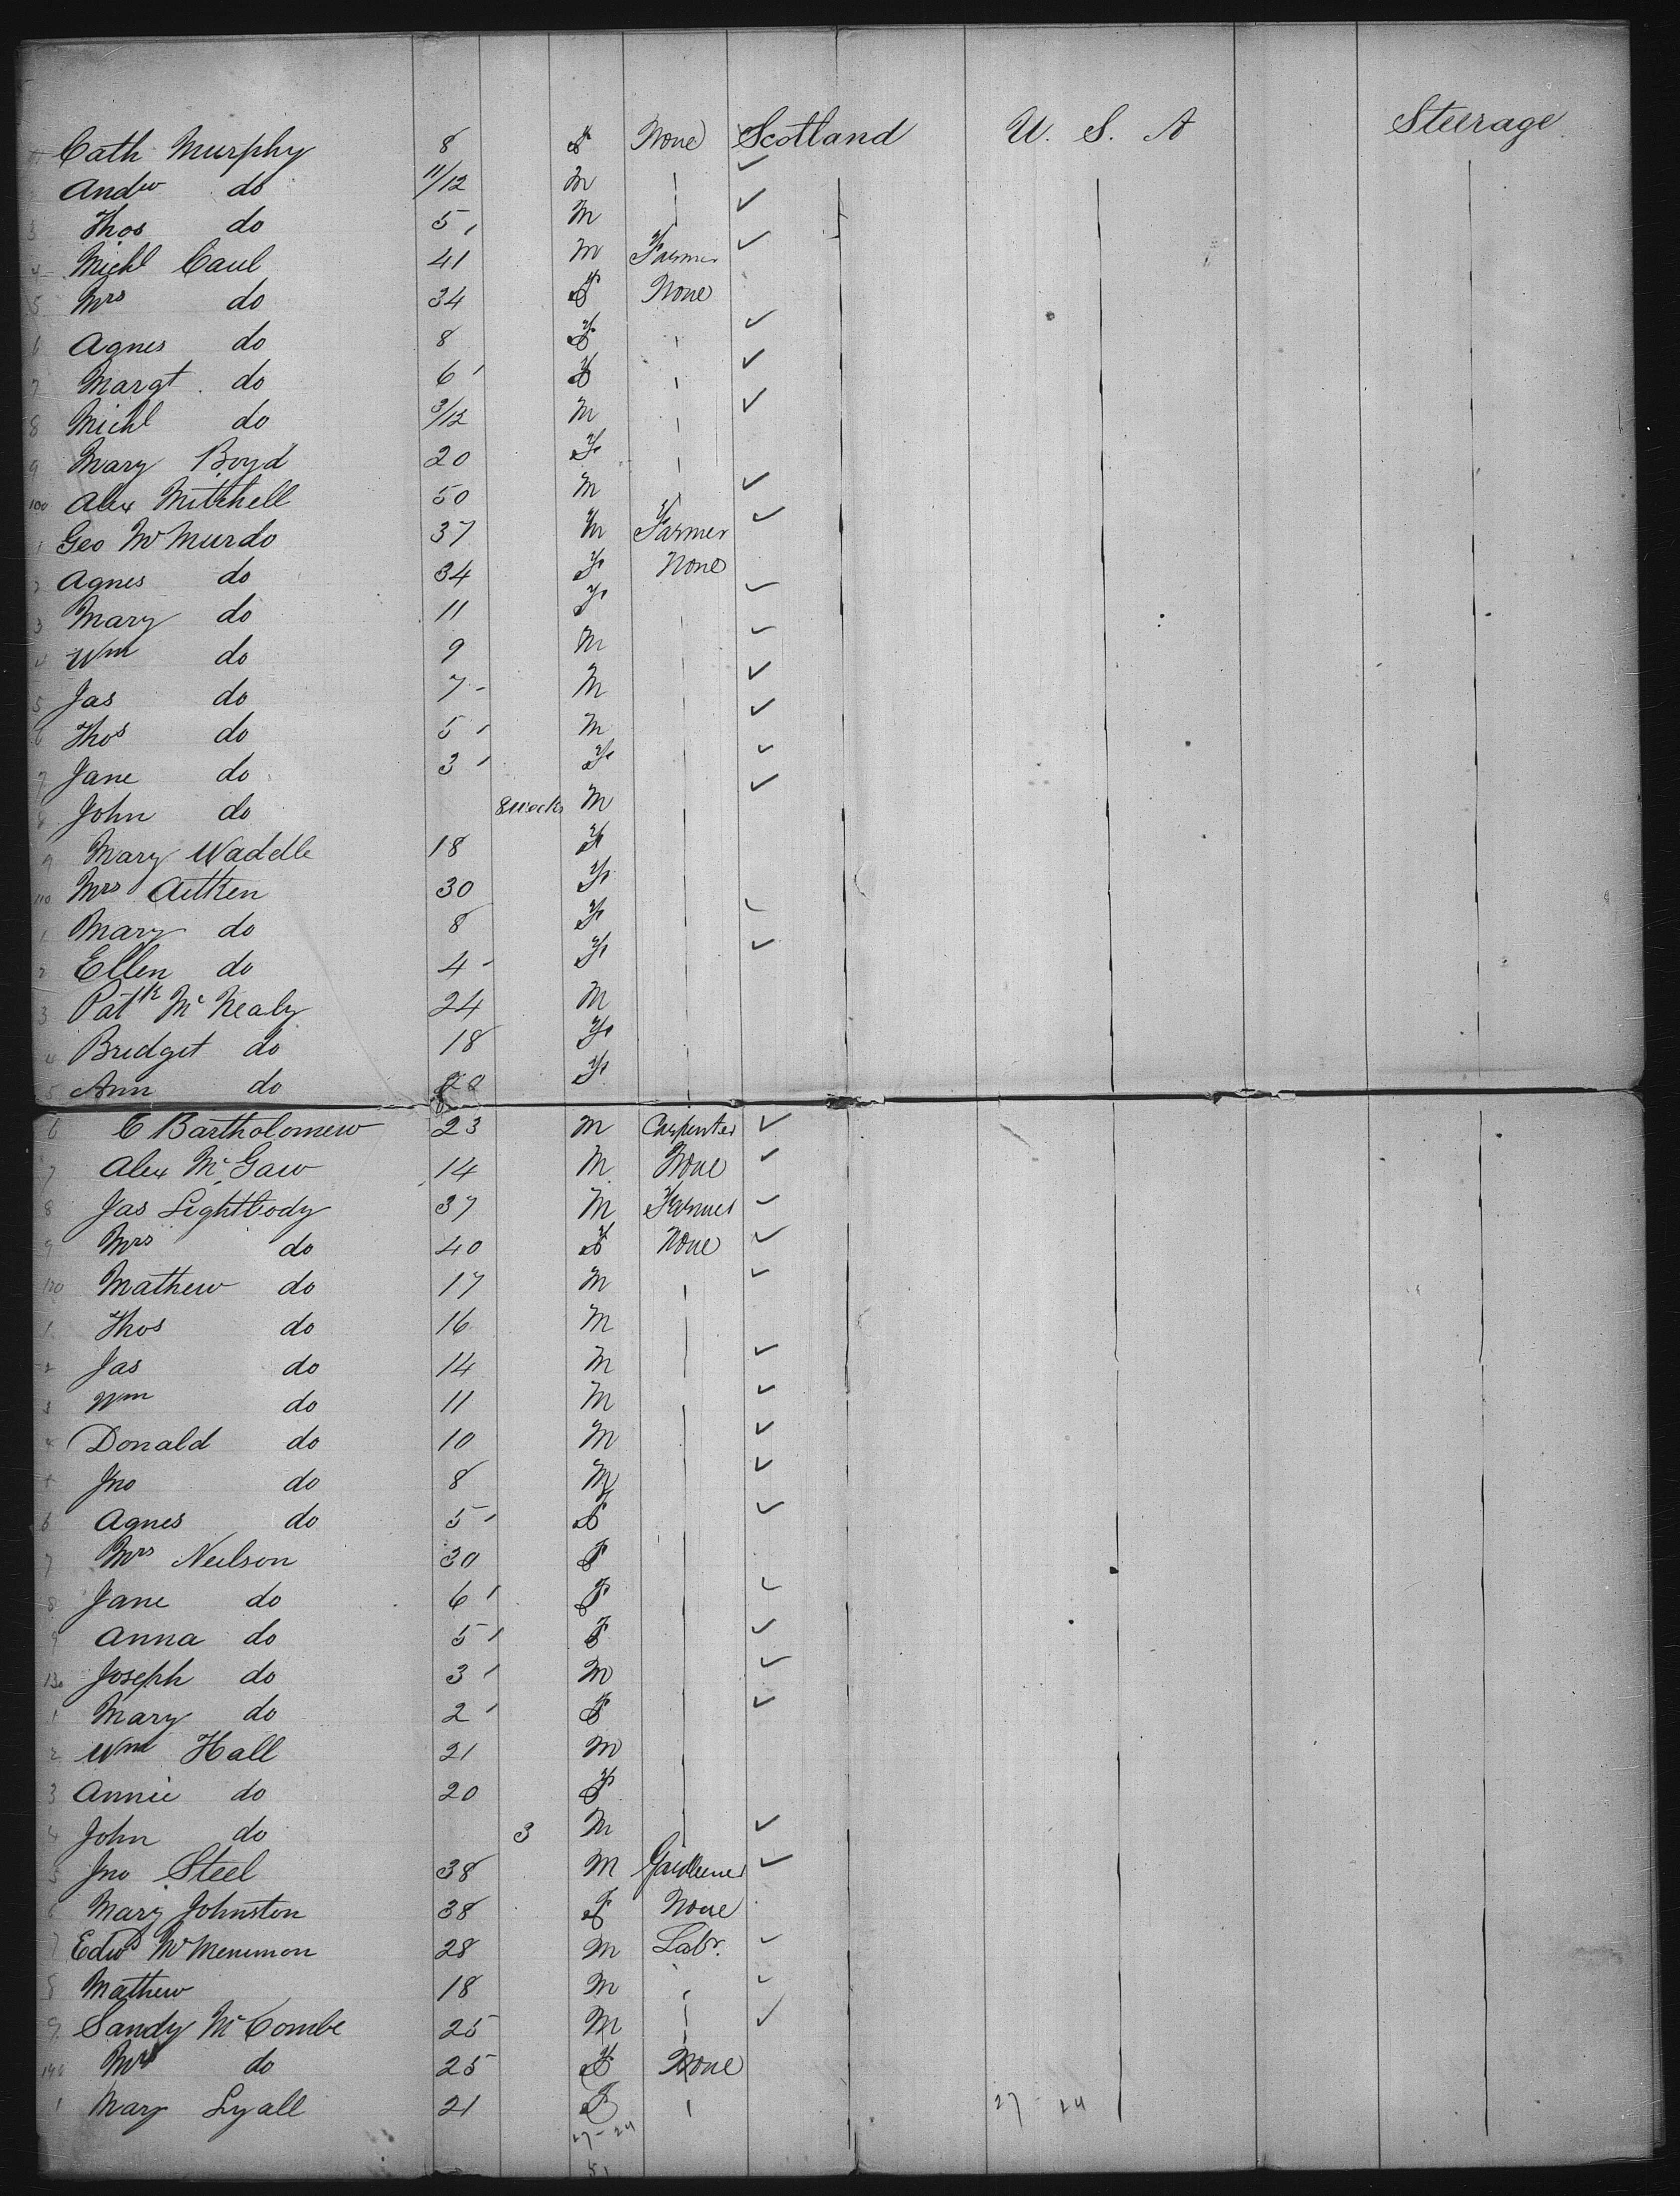 Cath Murphy 8 F None Scotland U. S. A Steerage
2 Andw do 11/12 M
3 Thos do 5 M
4 Michl Caul 41 M Farmer
5 Mrs do 34 F None
6 Agnes do 8 F
7 Margt. do 6 F
8 Michl do 3/12 M
9 Mary Boyd 20 F
100 Alex Mitchell 50 M
1 Geo Mc Murdo 37 M Farmer
2 Agnes do 34 F None
3 Mary do 11 F
4 Wm do 9 M
5 Jas do 7 M
6 Thos do 5 M
7 Jane do 3 F
8 John do 8 weeks M
9 Mary Waddle 18 F
110 Mrs Aitken 30 F
1 Mary do 8 F
2 Ellen do 4 F
3 Patk Mc Nealy 24 M
4 Bridget do 18 F
5 Ann do F
6 C Bartholomew 23 M Carpenter
7 Alex Mc Gaw 14 M None
8 Jas Lightbody 37 M Farmer
9 Mrs do 40 F None
120 Mathew do 17 M
1 Thos do 16 M
2 Jas do 14 M
3 Wm do 11 M
4 Donald do 10 M
5 Jno do 8 M
6 Agnes do 5 F
7 Mrs Neilson 30 F
8 Jane do 6 F
9 Anna do 5 F
130 Joseph do 3 M
1 Mary do 2 F
2 Wm Hall 21 M
3 Annie do 20 F
4 John do 3 M
5 Jno Steel 38 M Gardener
6 Mary Johnston 38 F None
7 Edwd Mc Menimon 28 M Labr.
8 Mathew 18 M
9 Sandy Mc Combe 25 M
140 Mrs do 25 F None
1 Mary Lyall 21 F
27 - 24 27 - 24
51